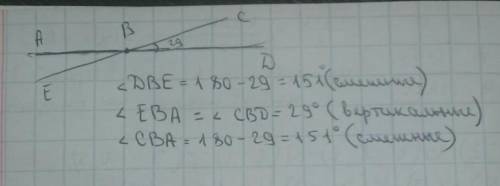 A B C
29
E D
∠DBE = 180 - 29 = 151° (смежные)
∠EBA = ∠CBD = 29° (вертикальные)
∠CBA = 180 - 29 = 151° (смежные)